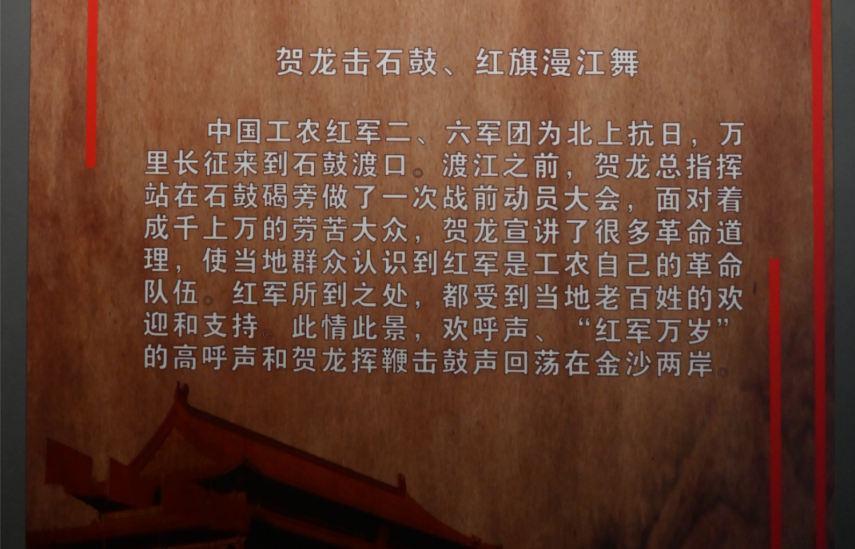 贺龙击石鼓、红旗漫江舞
中国工农红军二、六军团为北上抗日，万
里长征来到石鼓渡口。渡江之前，贺龙总指挥
站在石鼓碣旁做了一次战前动员大会，面对着
成千上万的劳苦大众，贺龙宣讲了很多革命道
理，使当地群众认识到红军是工农自己的革命
队伍。红军所到之处，都受到当地老百姓的欢
迎和支持。此情此景，欢呼声、“红军万岁”
的高呼声和贺龙挥鞭击鼓声回荡在金沙两岸。